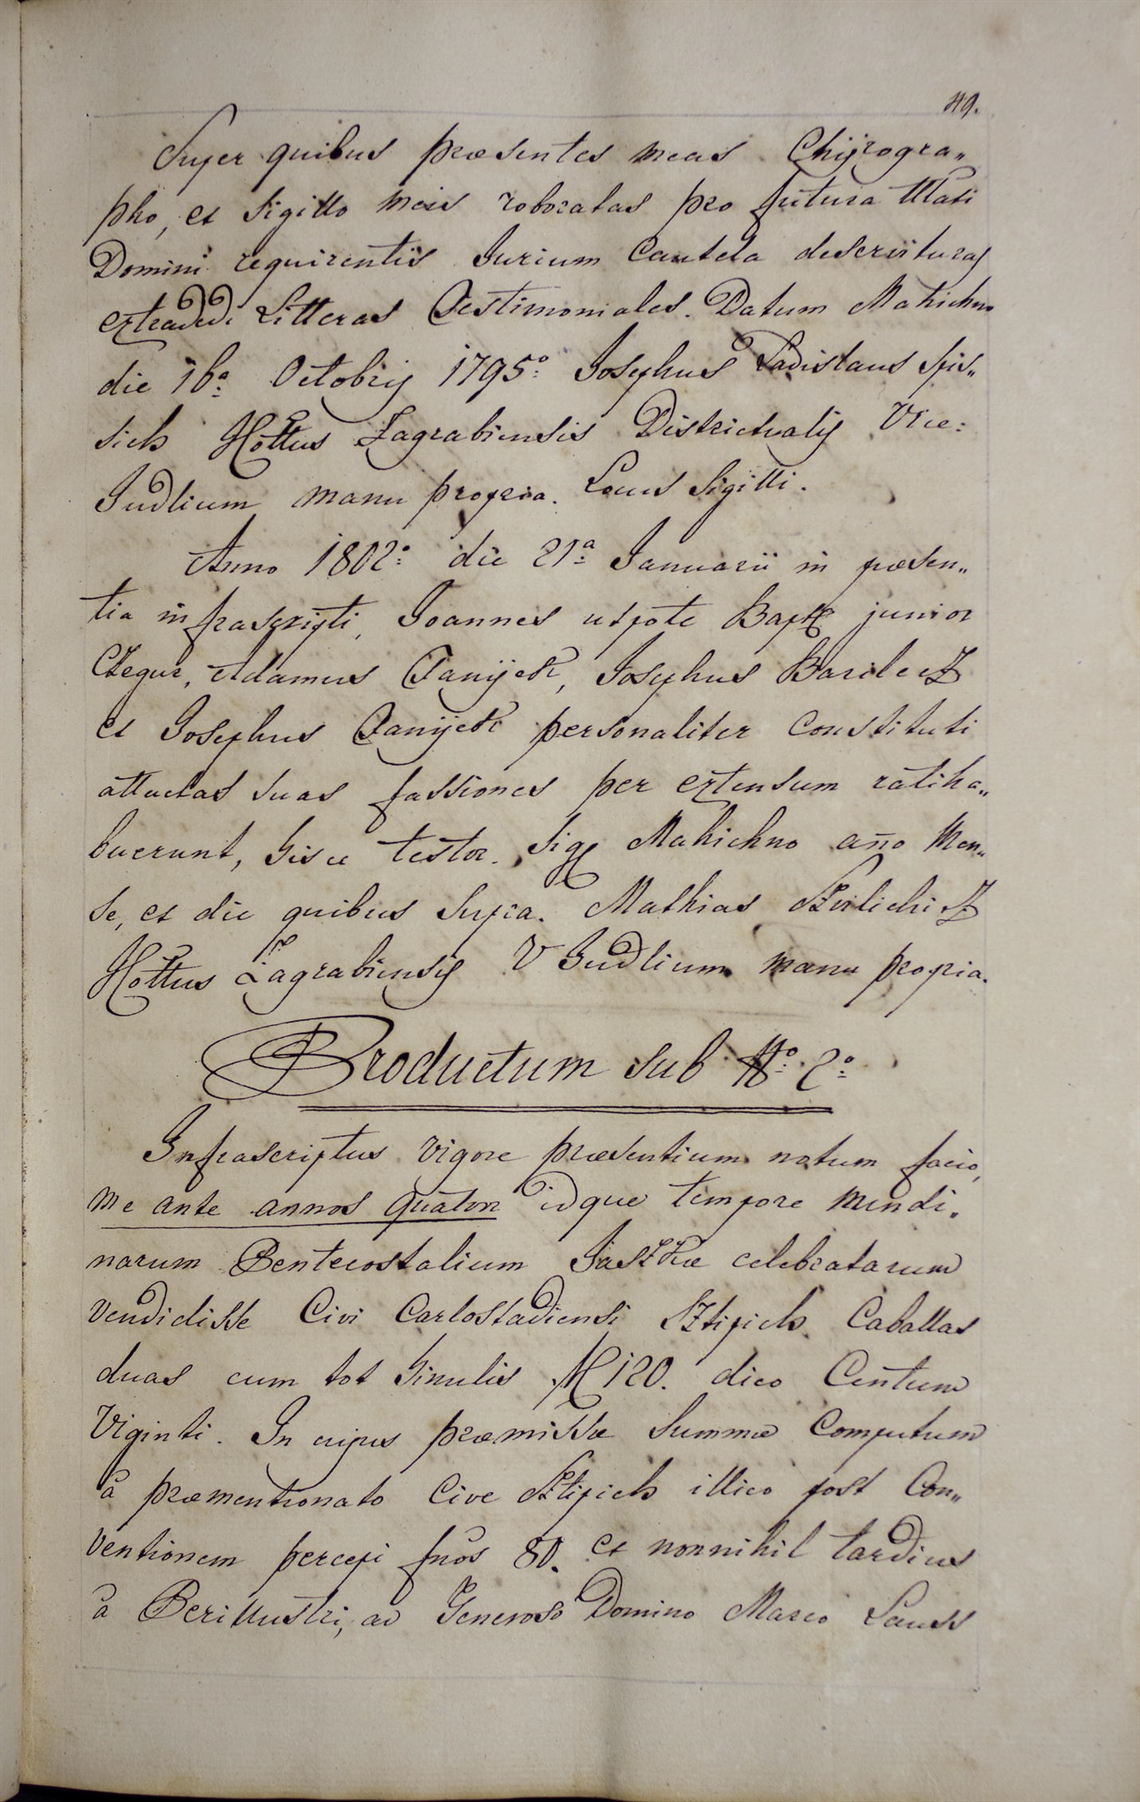 49.
Super quibus præsentes meas Chijrogra„
pho, et Sigillo meis roboratas pro futura Mati
Domini requirentis Jurium Cautela deservituras
extradedi Litteras Testimoniales. Datum Mahichno
die 16a Octobris 1795o: Josephus Ladislaus Spis„
sich Cottus Zagrabiensis Districtualis Vice:
Judlium manu propria. Locus Sigilli.
Anno 1802o: die 21a Januarii in præsen„
tia infrascripti, Joannes utpote Bapt junior
Czegur, Adamus Tanijek, Josephus Barlecz
et Josephus Tanijek personaliter Constituti
attactas suas fassiones per extensum ratiha„
buerunt, hisce testor. Sig Mahichno año Men„
se, et die quibus Supra. Mathias
Cottus Zagrabiensis V Judlium manu propria.
Productum sub No: 2o:
Infrascriptus vigore præsentium notum facio,
me ante annos quatuor idque tempore Nundi„
narum Pentecostalium Jaszkæ celebratarum
vendidisse Civi Carlostadiensi Sztipich Caballas
duas cum tot hinulis Rf 120. dico Centum
Viginti. In cujus præmissæ Summæ Computum
à præmentionato Cive Sztipich illico post Con„
ventionem percepi fnos 80. et nonnihil tardius
à Perillustri, ac Generoso Domino Marco Lauss